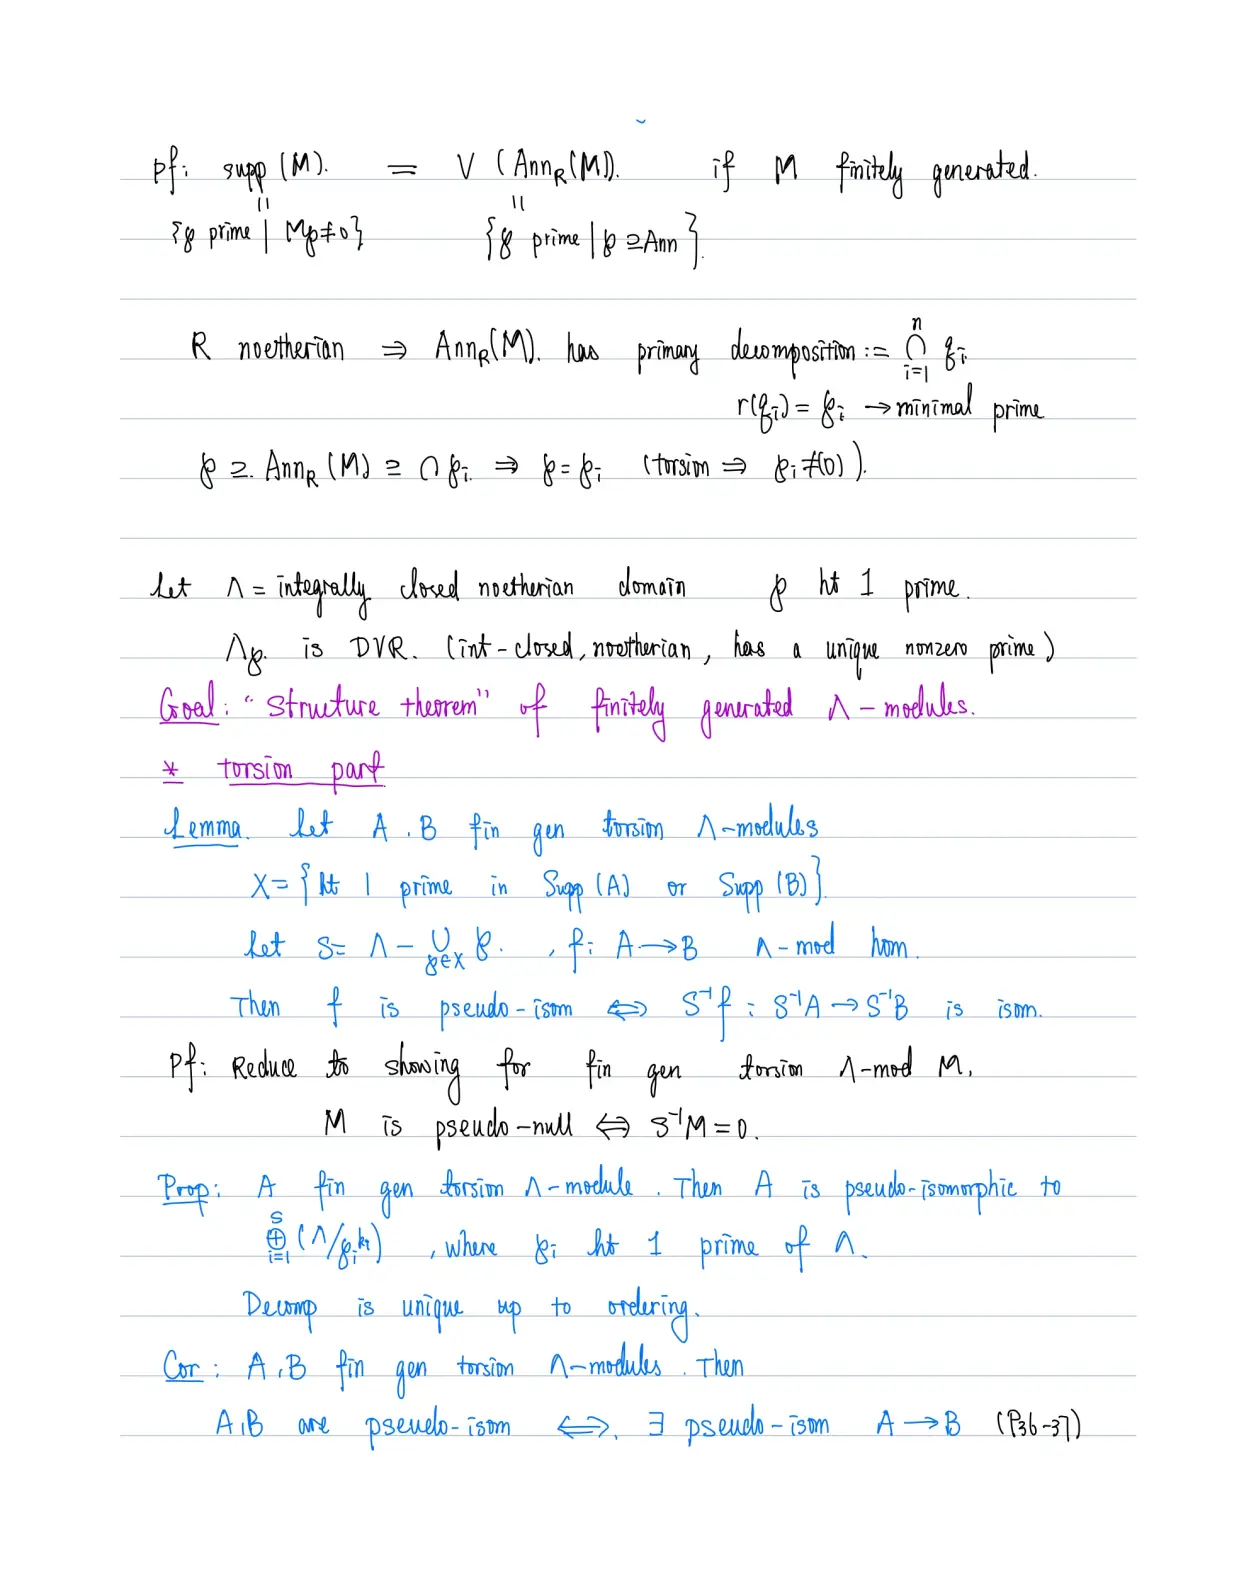 Pf: supp (M). = V (Ann_R(M)). if M finitely generated.
{℘ prime | M_℘≠0} {℘ prime | ℘ ⊇ Ann}.
R noetherian ⇒ Ann_R(M). has primary decomposition := ⋂_{i=1}^{n} q_i
r(q_i) = ℘_i → minimal prime
℘ ⊇. Ann_R (M) ⊇ ∩ ℘_i. ⇒ ℘ = ℘_i (torsion ⇒ ℘_i ≠ (0) ).
Let Λ = integrally closed noetherian domain ℘ ht 1 prime.
Λ_℘. is DVR. (int-closed, noetherian, has a unique nonzero prime)
Goal: "Structure theorem" of finitely generated Λ-modules.
* torsion part
Lemma. Let A, B fin gen torsion Λ-modules
X = { ht 1 prime in Supp (A) or Supp (B)}
Let S = Λ - ∪_{℘∈X} ℘. , f: A → B Λ-mod hom.
Then f is pseudo-isom ⇔ S⁻¹f : S⁻¹A → S⁻¹B is isom.
Pf: Reduce to showing for fin gen torsion Λ-mod M,
M is pseudo-null ⇔ S⁻¹M = 0.
Prop: A fin gen torsion Λ-module. Then A is pseudo-isomorphic to
⊕_{i=1}^{s} (Λ/℘_i^{k_i}) , where ℘_i ht 1 prime of Λ.
Decomp is unique up to ordering.
Cor: A, B fin gen torsion Λ-modules. Then
A, B are pseudo-isom ⇔. ∃ pseudo-isom A → B (P36-37)